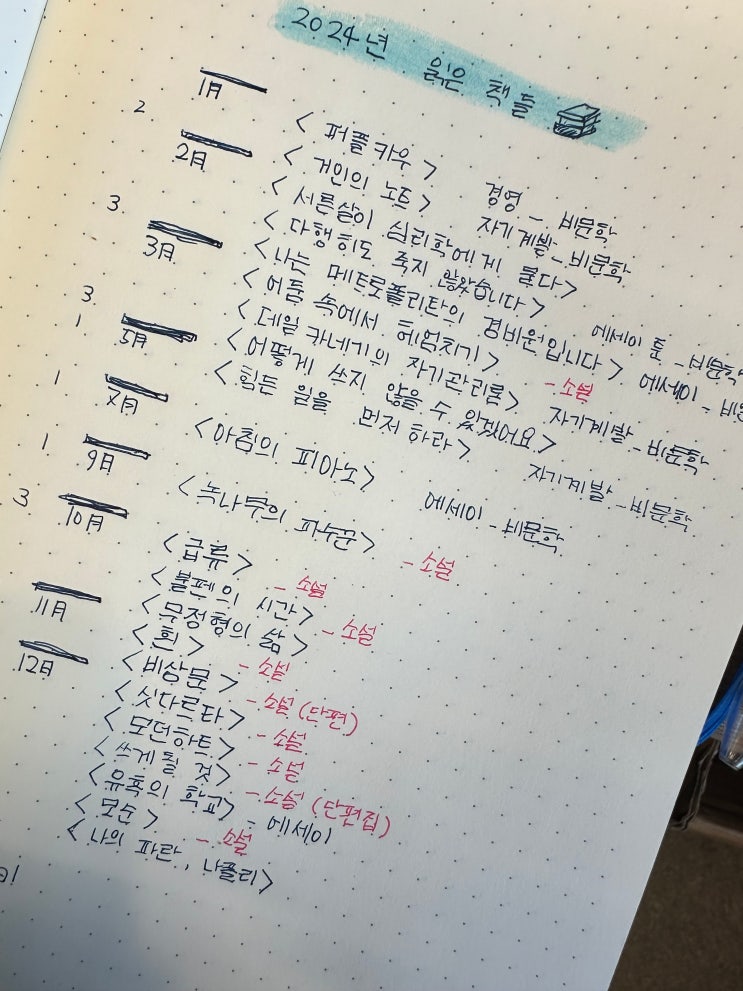 2024년 읽은 책들
1月
<퍼플카우> 경영 - 비문학
2
<거인의 노트> 자기계발 - 비문학
2月
<서른살이 심리학에게 묻다>
<다행히도 죽지 않았습니다> 에세이 툰 - 비문학
3
<나는 메트로폴리탄의 경비원입니다> 에세이 - 비문
3月
<어둠 속에서 헤엄치기> - 소설
<데일 카네기의 자기관리론> 자기계발 - 비문학
3
<어떻게 쓰지 않을 수 있겠어요>
1
<힘든 일을 먼저 하라> 자기계발 - 비문학
5月
<아침의 피아노> 에세이 - 비문학
1
月
<녹나무의 파수꾼> - 소설
1
9月
<급류> - 소설
3
10月
<불펜의 시간> - 소설
<무정형의 삶>
<흰> - 소설
11月
<비상문> - 소설 (단편)
<싯다르타> - 소설
12月
<모던하트> - 소설
<쓰게 될 것> - 소설 (단편집)
<유혹의 학교> - 에세이
<모순> - 소설
<나의 파란, 나폴리>